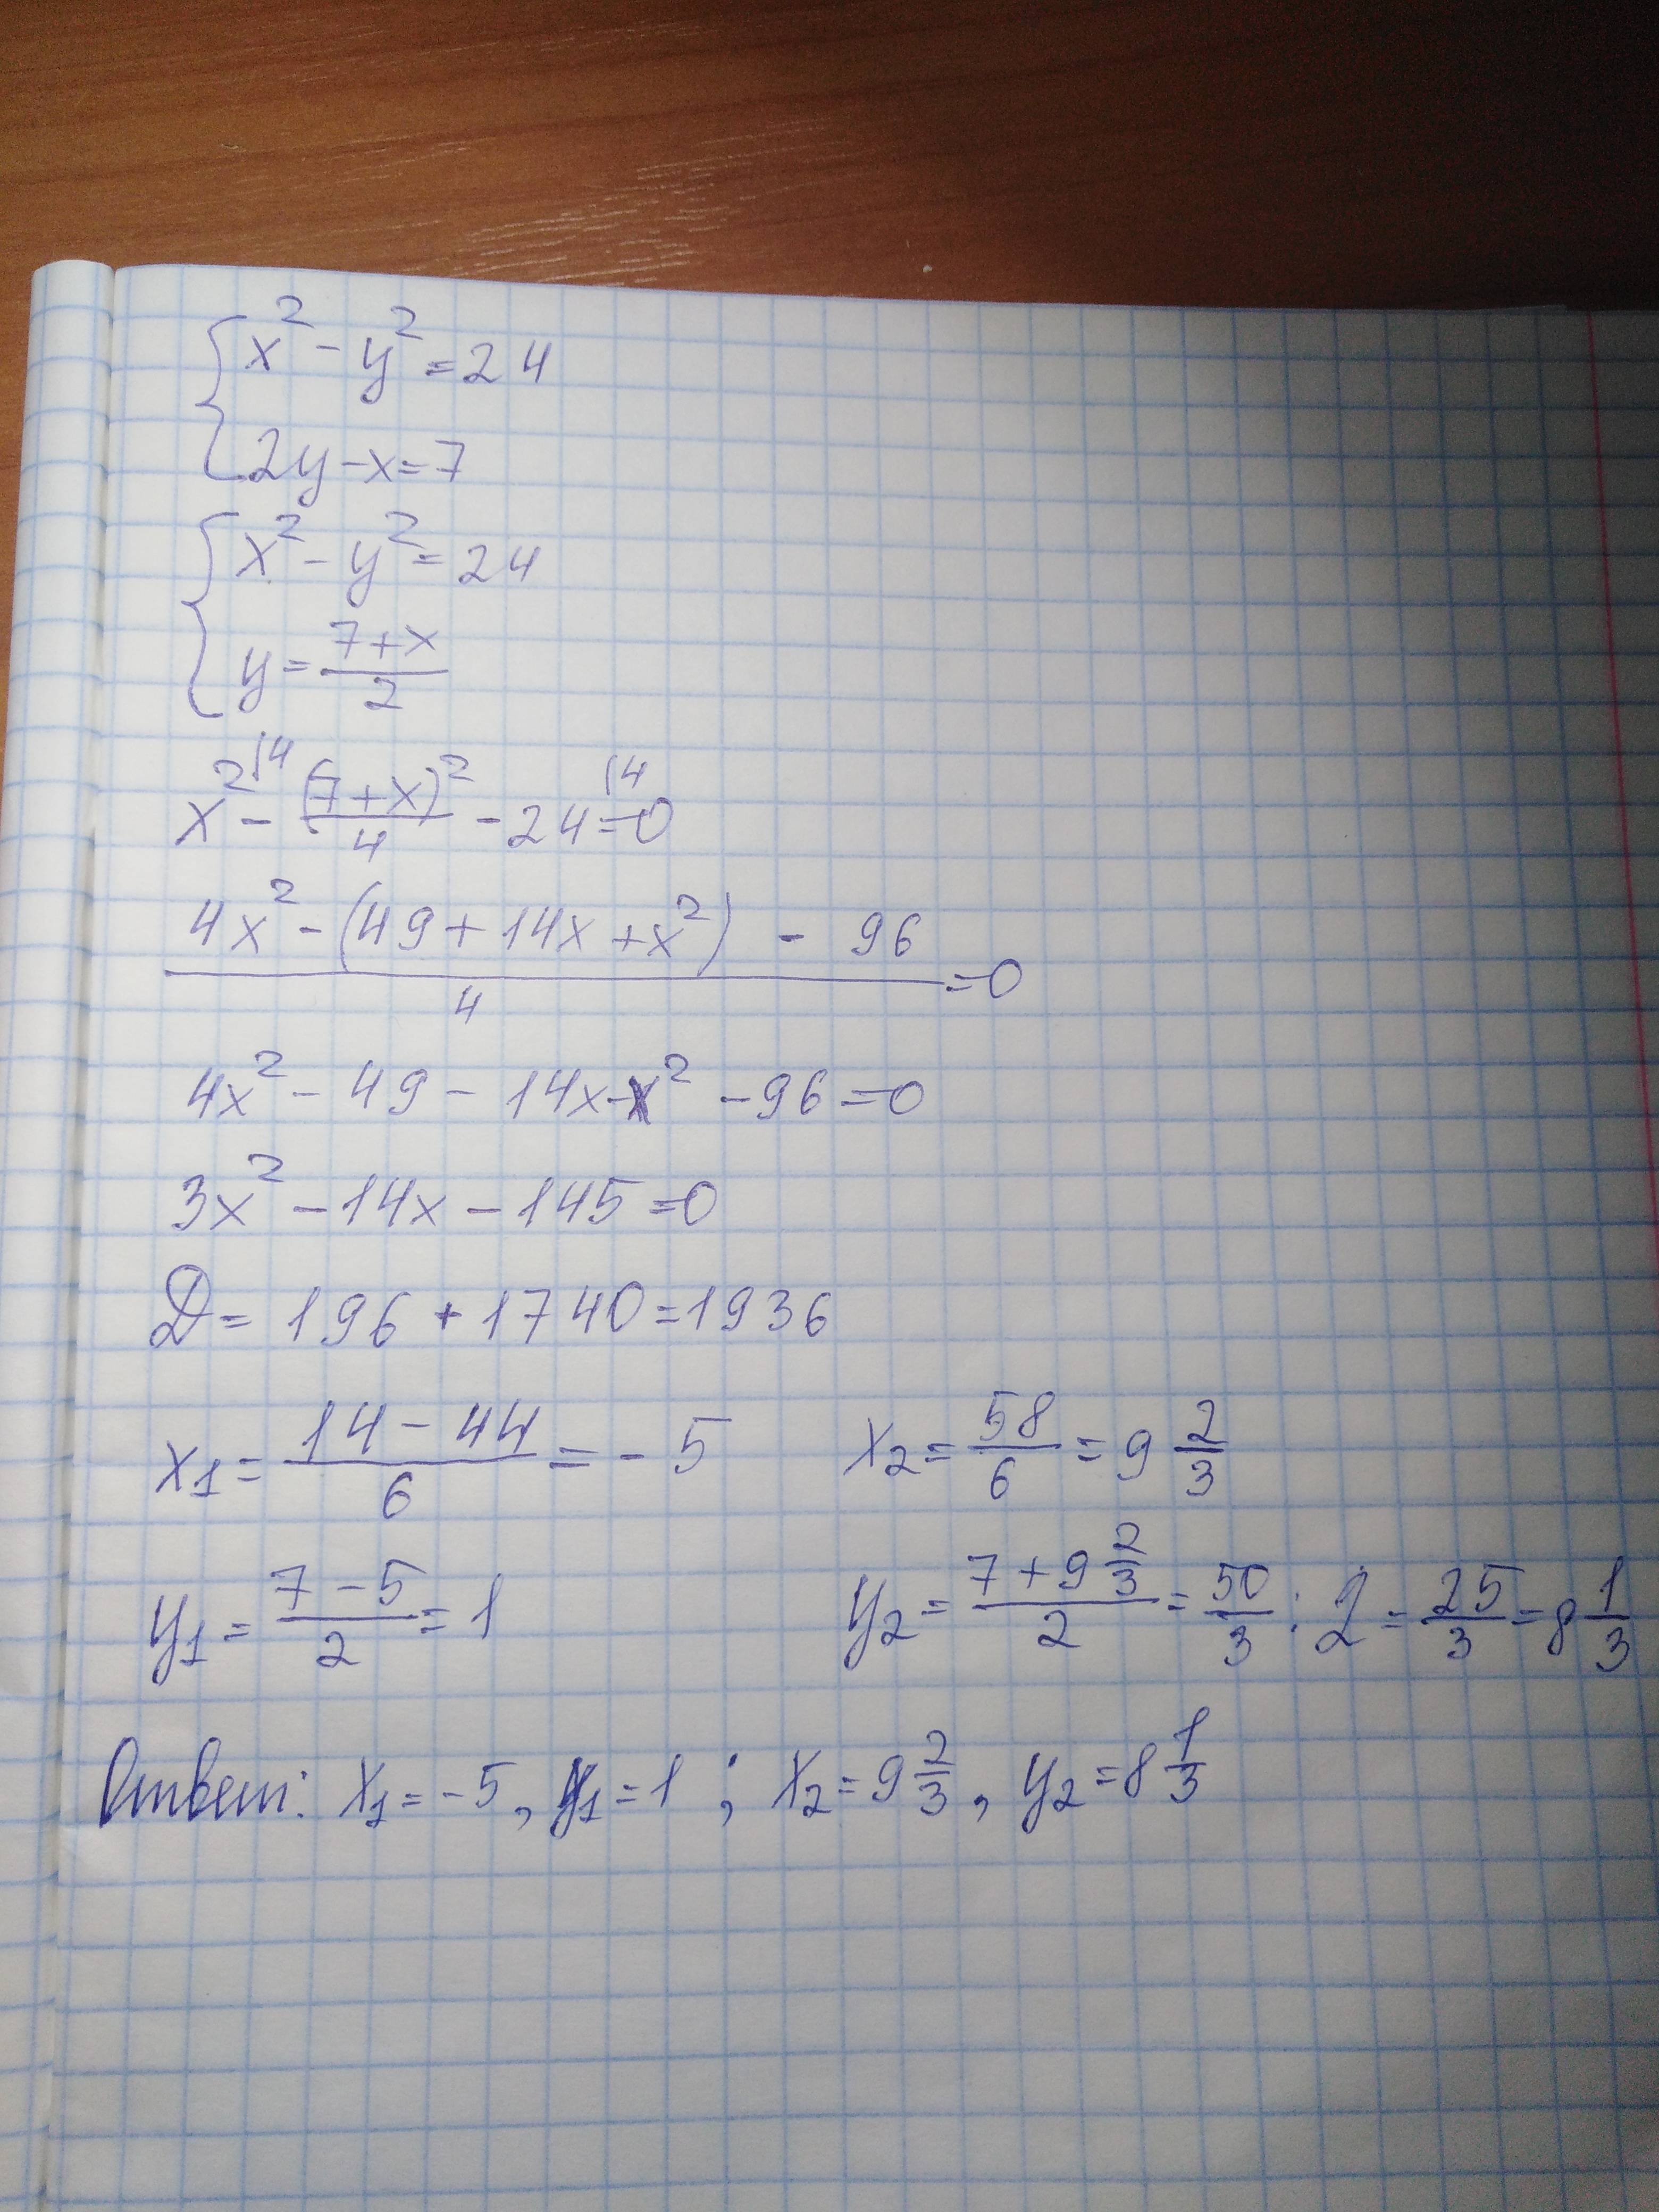 {x² - y² = 24
2y - x = 7
{x² - y² = 24
y = (7+x)/2
x²⁽⁴ - (7+x)²/4 - 24⁽⁴ = 0
(4x² - (49 + 14x + x²) - 96)/4 = 0
4x² - 49 - 14x - x² - 96 = 0
3x² - 14x - 145 = 0
D = 196 + 1740 = 1936
x₁ = (14 - 44)/6 = -5 x₂ = 58/6 = 9 2/3
y₁ = (7 - 5)/2 = 1 y₂ = (7 + 9 2/3)/2 = 50/3 : 2 = 25/3 = 8 1/3
Ответ: x₁ = -5, y₁ = 1 ; x₂ = 9 2/3, y₂ = 8 1/3